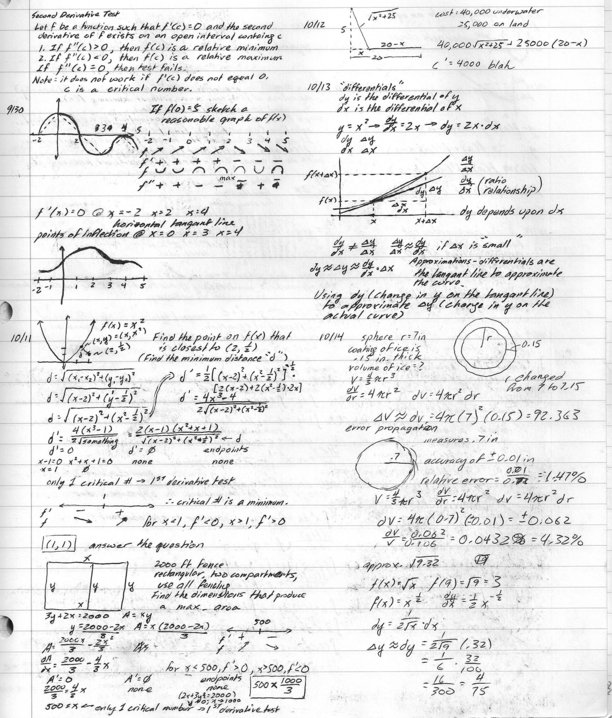 Second Derivative Test
Let f be a function such that f'(c)=0 and the second
derivative of f exists on an open interval containing c
1. If f''(c)>0, then f(c) is a relative minimum
2. If f''(c)<0, then f(c) is a relative maximum
If f''(c)=0, then test fails.
Note: it does not work if f'(c) does not equal 0.
c is a critical number.
9/30
If f(0)=5 sketch a
reasonable graph of f(x)
-2 2 3 4 5
-2 -1 0 1 2 3 4 5
f
f' + + + -
f
max
f'' + +
f'(x)=0 @ x=-2 x=2 x=4
horizontal tangent line
points of inflection @ x=0 x=3 x=4
-2 -1 1 2 3 4 5
10/11
f(x)=x²
(x,y)=(x,x²)
(2,½)
Find the point on f(x) that
is closest to (2,½)
(Find the minimum distance "d")
d=√(x₁-x₂)²+(y₁-y₂)²
d=√(x-2)²+(y-½)²
d=√(x-2)²+(x²-½)²
d'=½[(x-2)²+(x²-½)²]^-½
[2(x-2)+2(x²-½)·2x]
d'=4x³-4
2√(x-2)²+(x²-½)²
d'=4(x³-1)
2√something
=2(x-1)(x²+x+1)
√(x-2)²+(x²-½)² ← d
d'=0 d'=∅ endpoints
x-1=0 x²+x+1=0 none none
x=1 ∅
only 1 critical # → 1st derivative test
- 1 +
∴ critical # is a minimum.
f'
f
for x<1, f'<0, x>1, f'>0
(1,1) answer the question
x
y y y
x
2000 ft fence
rectangular, two compartments,
use all fencing
Find the dimensions that produce
a max. area
3y+2x=2000 A=xy
y=2000-2x
3
A=x(2000-2x)
3
A=2000x - 2x²
3 3
500
f' + -
f
dA = 2000 - 4x
dx 3 3
for x<500, f'>0, x>500, f'<0
A'=0 A'=∅ endpoints
2000=4x none none
3 3
500 x 1000
3
500=x ← only 1 critical number → 1st derivative test
10/12
√x²+25
5
20-x
x
20
cost: 40,000 underwater
25,000 on land
40,000√x²+25 + 25000(20-x)
c'=4000 blah
10/13 "differentials"
dy is the differential of y
dx is the differential of x
y=x² → dy/dx=2x → dy=2x·dx
dy Δy
dx Δx
f(x+Δx)
f(x)
x x+Δx
dy Δy
Δx
dx
Δy
Δx
dy
dx
(ratio
relationship)
dy depends upon dx
dy/dx ≠ Δy/Δx Δy/Δx ≈ dy/dx if Δx is "small"
dy≈Δy≈dy/dx·Δx
Approximations - differentials are
the tangent line to approximate
the curve.
Using dy (change in y on the tangent line)
to approximate Δy (change in y on the
actual curve)
10/14 sphere r=7in
coating of ice is
.15 in. thick
volume of ice=?
V=4/3πr³
dV/dr=4πr² dv=4πr²dr
r
0.15
r changed
from 7 to 7.15
ΔV≈dv=4π(7)²(0.15)=92.363
error propagation
.7
measures .7in
accuracy of ±0.01in
relative error=0.01 =1.47%
V=4/3πr³ dV/dr=4πr² dv=4πr²dr
dV=4π(0.7)²(±0.01)=±0.062
dV/V = 0.062 =0.0432 =4.32%
approx. √9.32
f(x)=√x f(9)=√9=3
f(x)=x^½ dy/dx=½x^-½
dy=1/2√x·dx
Δy≈dy=1/2√9 (.32)
=1/6·32/100
=16/300=4/75